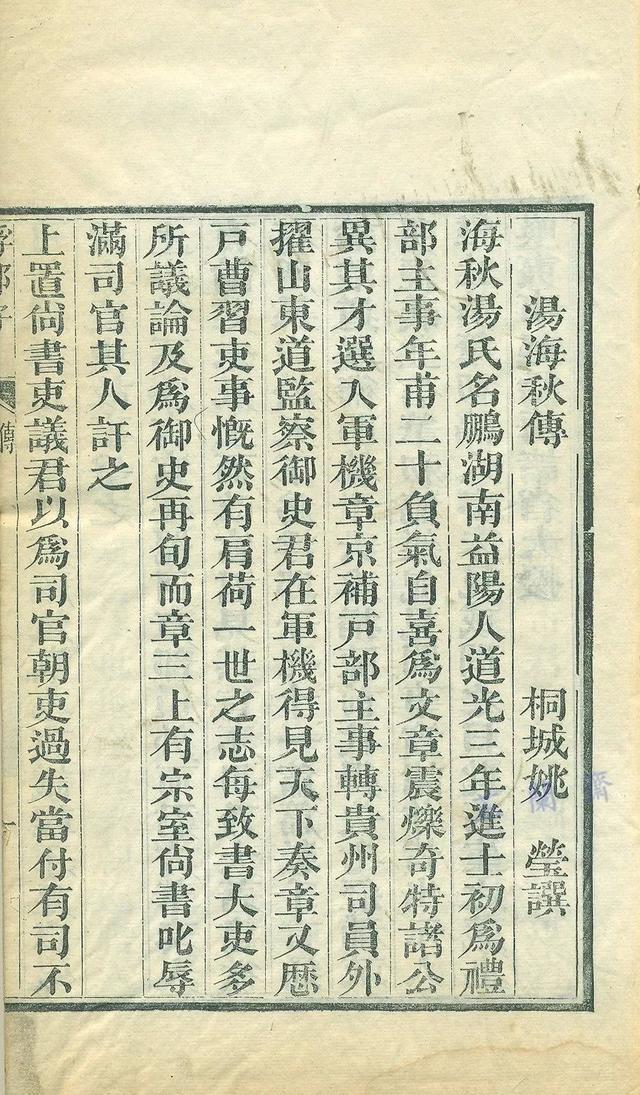 湯海秋傳　　　桐城姚　瑩譔
海秋湯氏名鵬湖南益陽人道光三年進士初爲禮
部主事年甫二十負氣自喜爲文章震爍奇特諸公
異其才選入軍機章京補戸部主事轉貴州司員外
擢山東道監察御史君在軍機得見天下奏章又歴
戸曹習吏事慨然有肩荷一世之志每致書大吏多
所議論及爲御史再旬而章三上有宗室尚書叱辱
滿司官其人訐之
上置尚書吏議君以爲司官朝吏過失當付有司不
浮邱子
傳